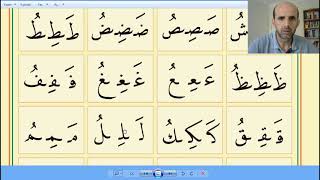 شُ صَصِصُ ضَضِضُ طَطِطُ
ظَظِظُ عَعِعُ غَغِغُ فَفِفُ
قَقِقُ كَكِكُ لَلِلُ مَمِمُ